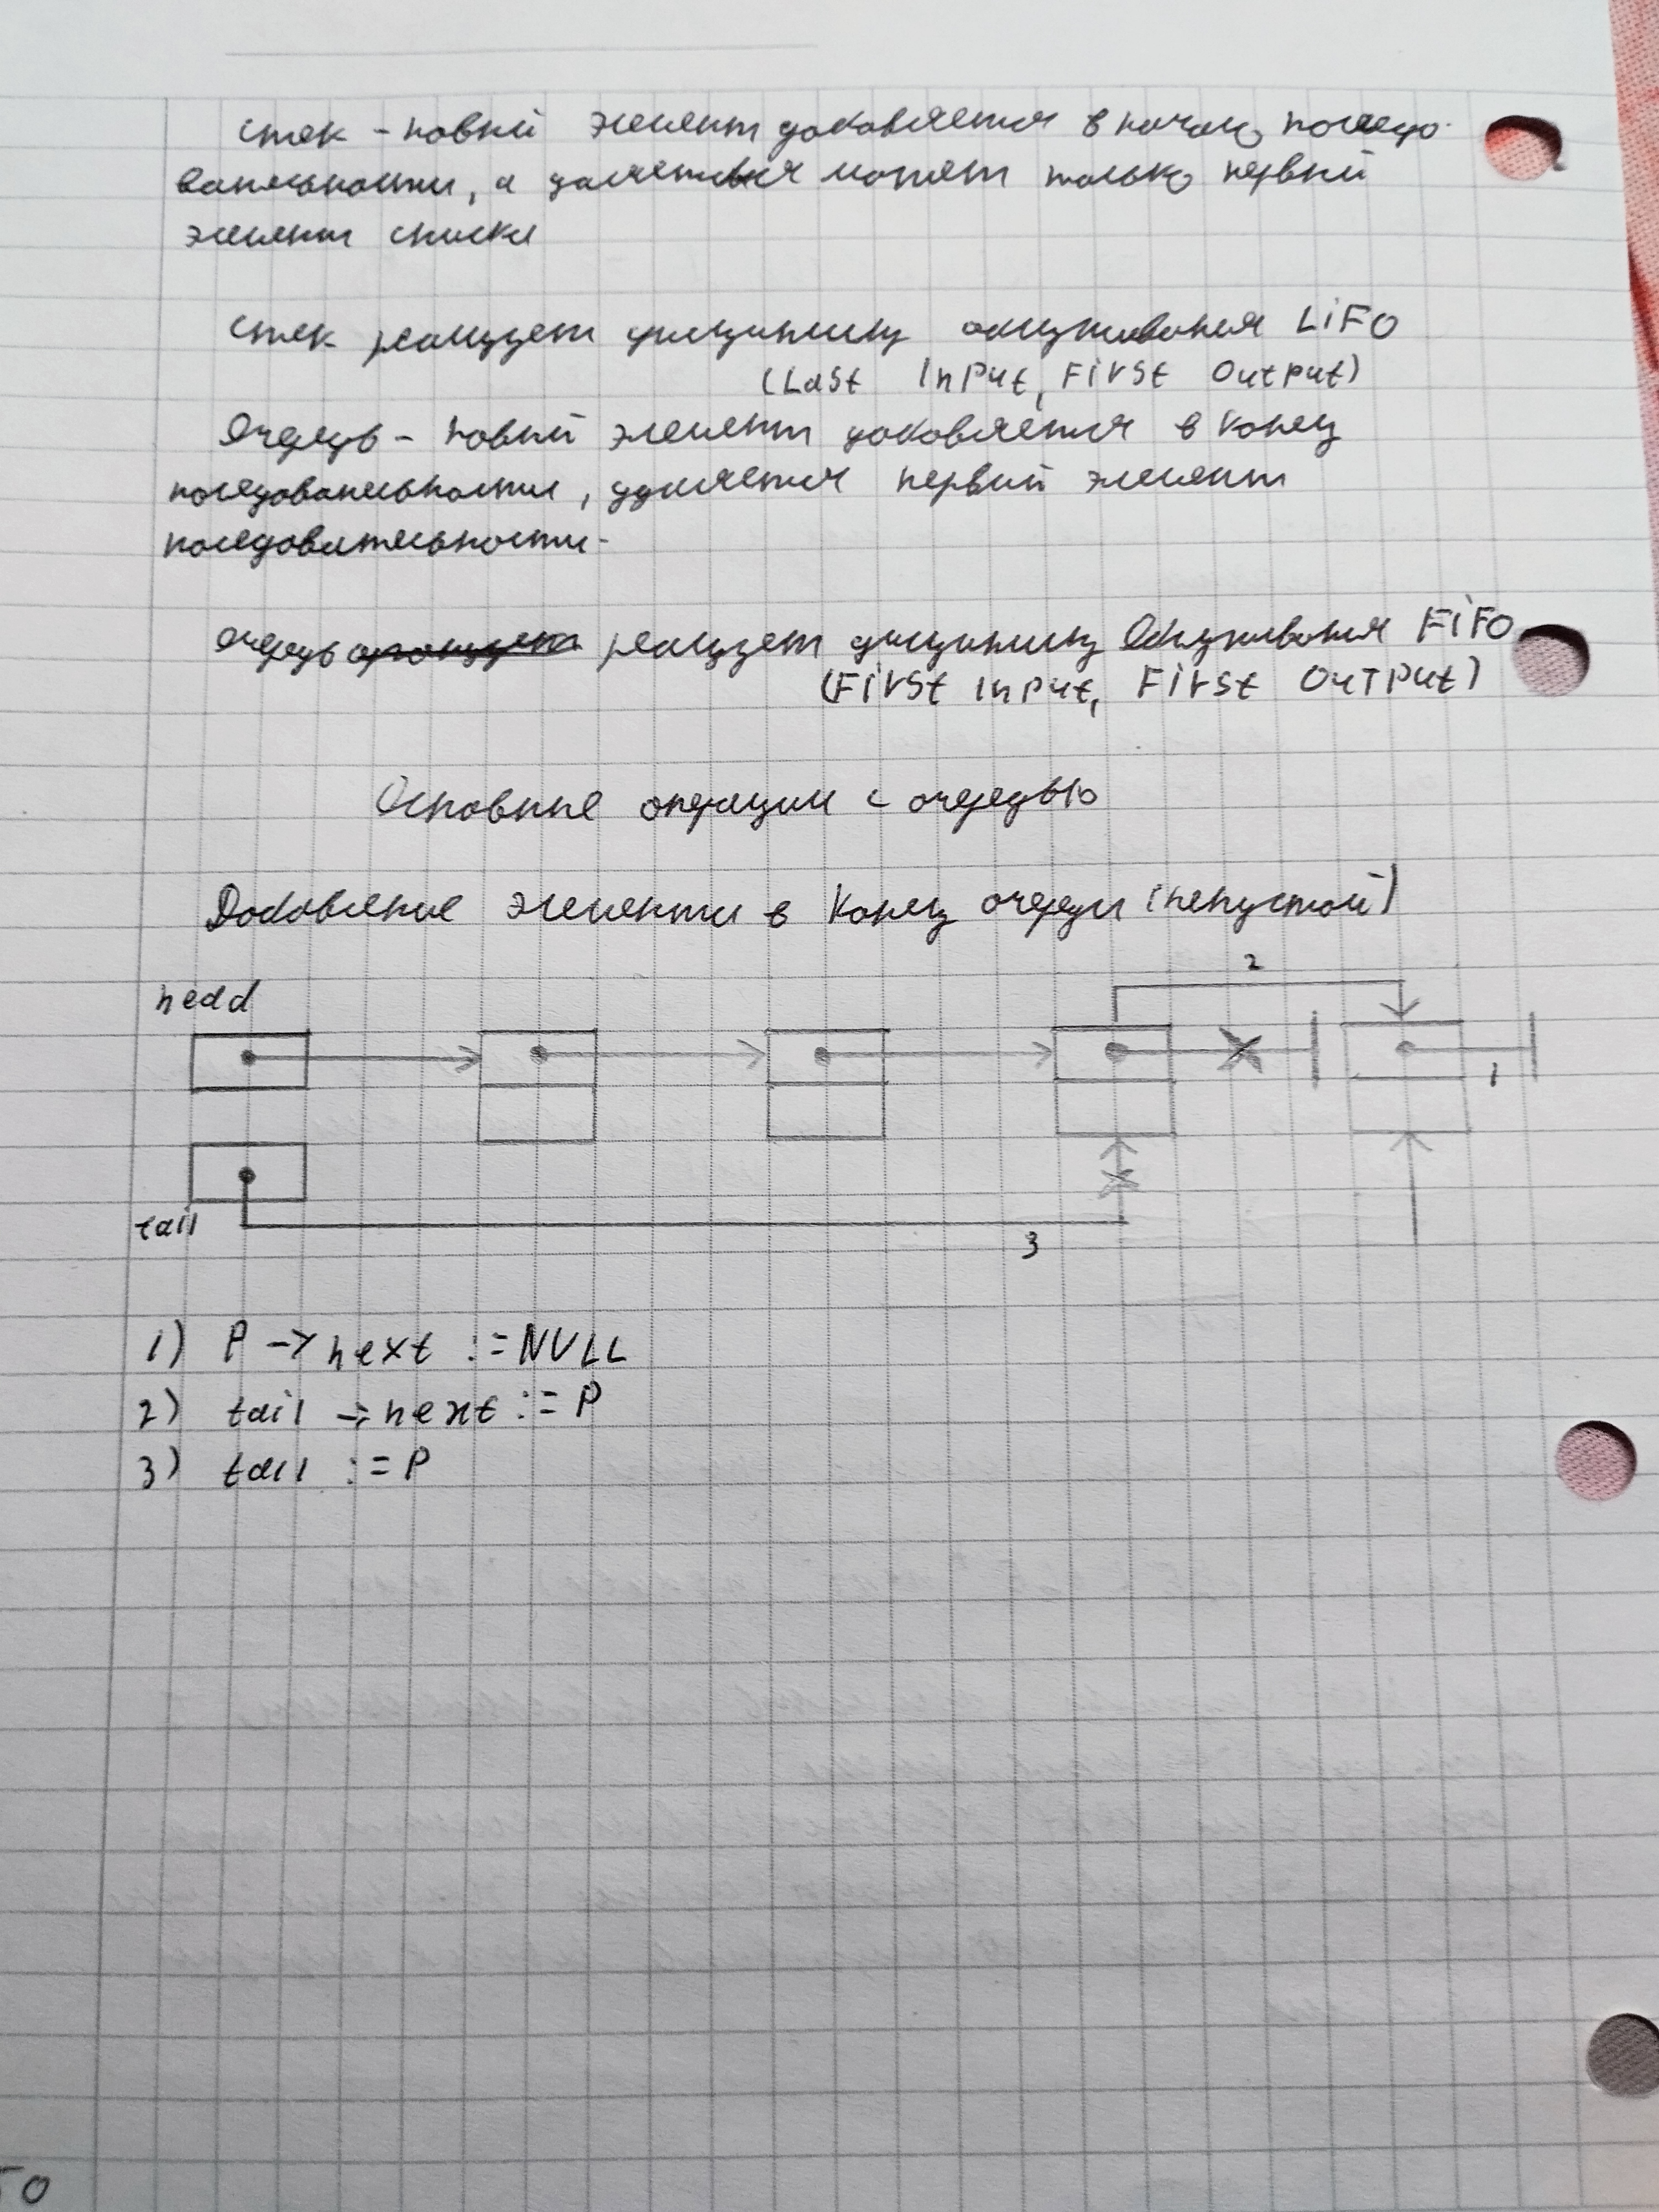 стек - новый элемент добавляется в начало последо-
вательности, а удаляться может только первый
элемент списка
стек реализует дисциплину обслуживания LiFO
(Last Input, First Output)
Очередь - новый элемент добавляется в конец
последовательности, удаляется первый элемент
последовательности.
очередь реализует дисциплину Обслуживания FiFO
(First Input, First OuTput)
Основные операции с очередью
Добавление элемента в конец очереди (непустой)
2
head
1
tail
3
1) P -> next := NULL
2) tail -> next := P
3) tail := P